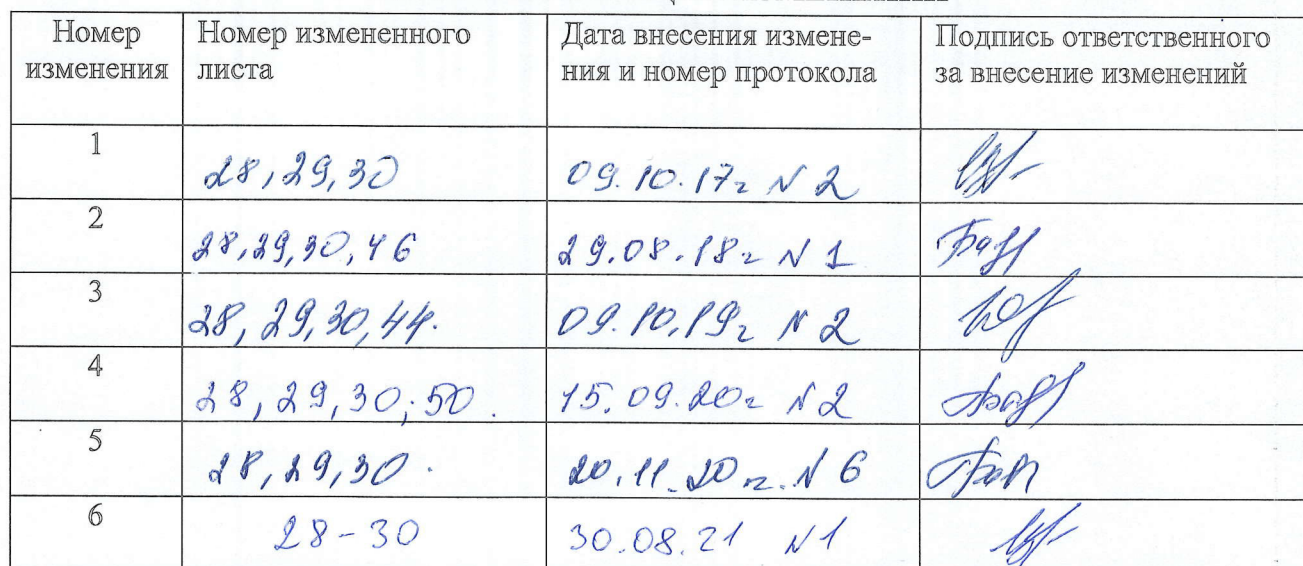 Номер изменения Номер измененного листа Дата внесения измене- ния и номер протокола Подпись ответственного за внесение изменений
1 28,29,30 09.10.17г N 2
2 28,29,30,46 29.08.18г N 1
3 28,29,30,44. 09.10.19г N 2
4 28,29,30,50. 15.09.20г N 2
5 28,29,30. 20.11.20г. N 6
6 28-30 30.08.21 N1